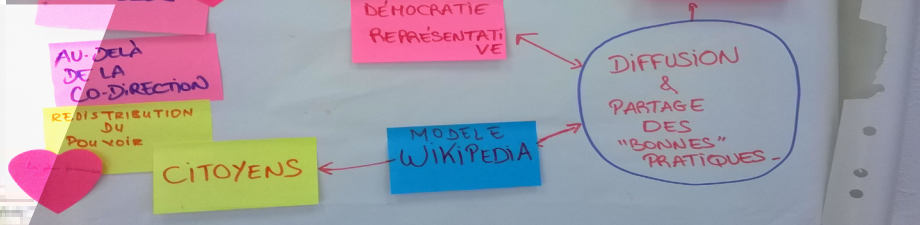 AU-DELÀ
DE LA
CO-DIRECTION
REDISTRIBUTION
DU
POUVOIR
CITOYENS
DÉMOCRATIE
REPRÉSENTATI
VE
MODELE
WIKIPEDIA
DIFFUSION
&
PARTAGE
DES
"BONNES"
PRATIQUES-